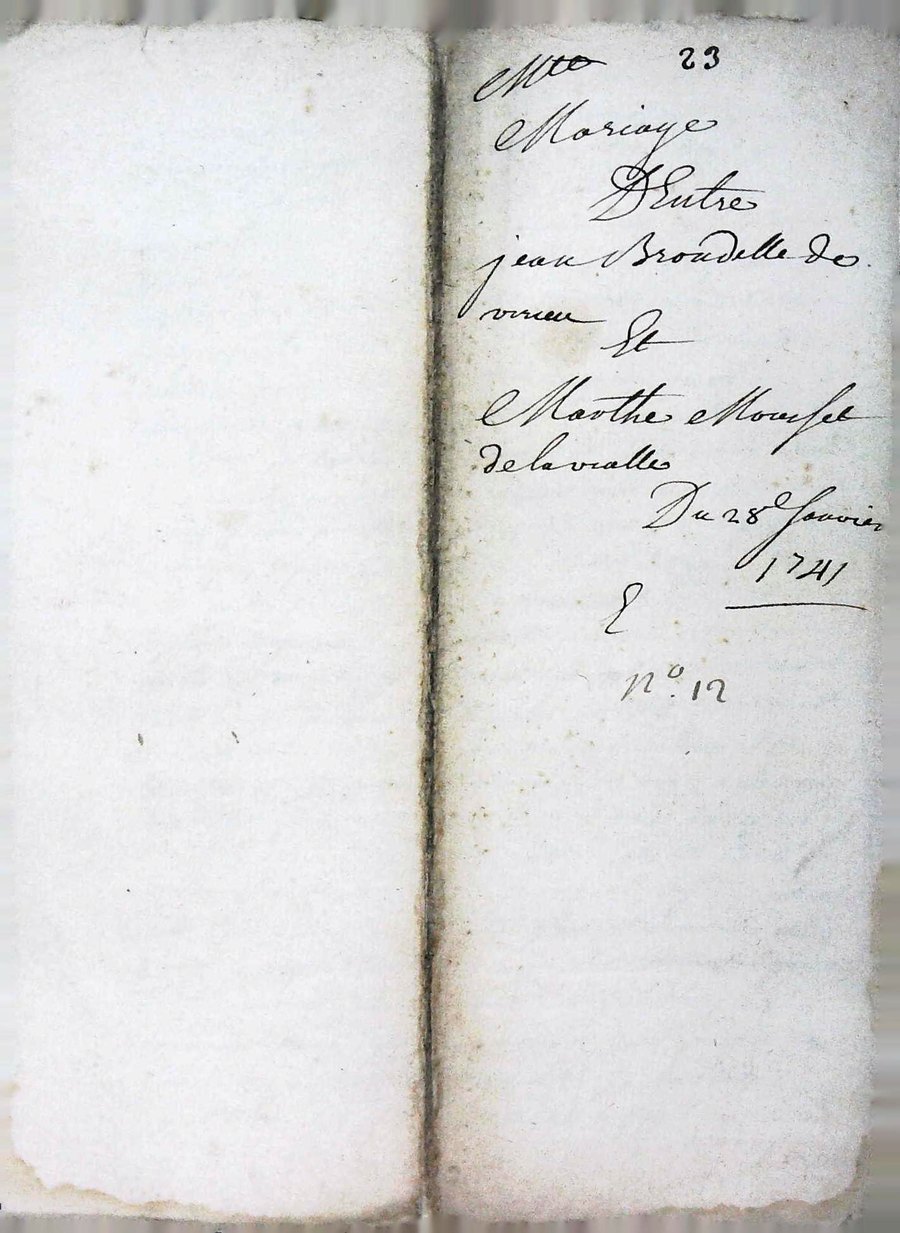 23
Mariage
D'Entre
jean Broudelle de
virieu
Et
Marthe Mousset
delavialle
Du 28e Janvier
1741
E
n° 12